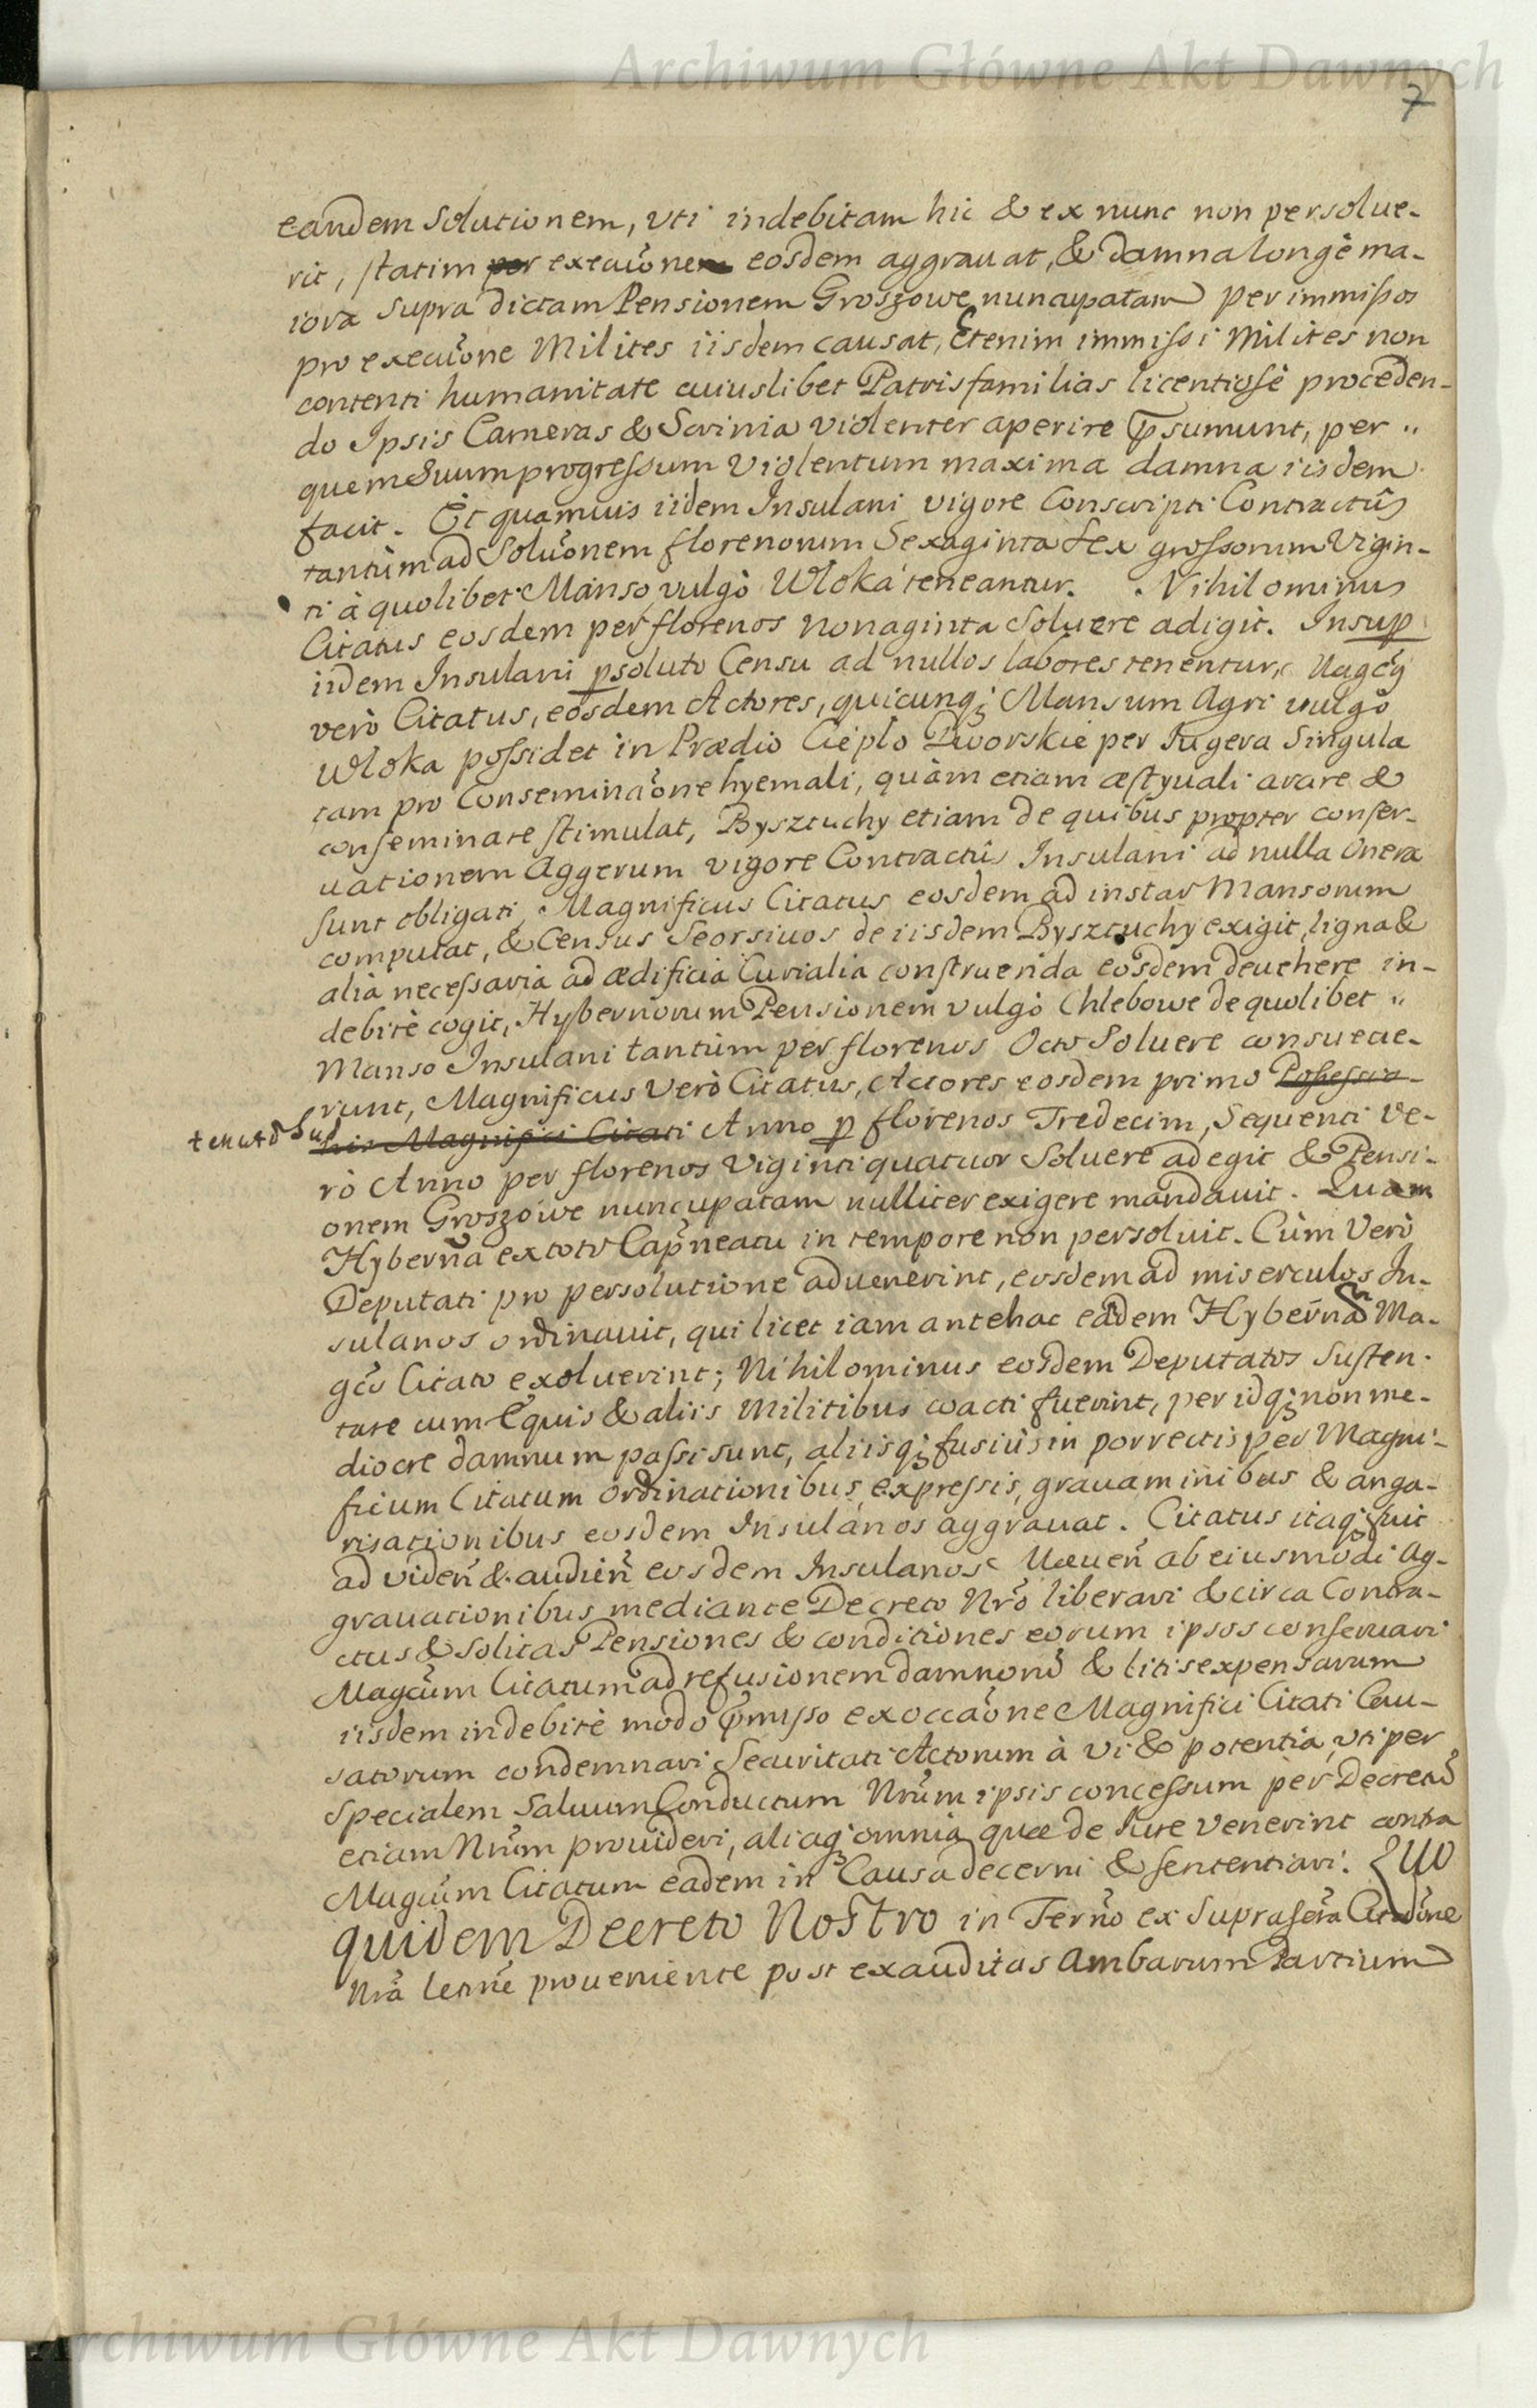 Archiwum Główne Akt Dawnych
7
eandem Solutionem, vti indebitam hic & ex nunc non persolue-
rit, statim per execuõnem eosdem aggrauat, & damna longè ma-
iora supra dictam Pensionem Groszowe nuncupatam per immissos
pro execuõne Milites iisdem causat, Etenim immissi Milites non
contenti humanitate cuiuslibet Patrisfamilias licentiosè proceden-
do Ipsis Cameras & Scrinia violenter aperire p̃sumunt, per
quem Suum progressum violentum maxima damna iisdem
facit. Et quamuis iidem Insulani vigore Conscripti Contractûs
tantùm ad Soluõnem florenorum Sexaginta sex grossorum Vigin-
ti à quolibet Manso vulgò Wloka teneantur. Nihilominus
Citatus eosdem per florenos nonaginta Soluere adigit. Insup
iidem Insulani psoluto Censu ad nullos labores tenentur, Magcũs
verò Citatus, eosdem Actores, quicunq; Mansum Agri vulgò
Wloka possidet in Prædio Cieplo Dworskie per Iugera Singula
tam pro Conseminaõne hyemali, quàm etiam æstyuali arare &
conseminare stimulat, Bysztuchy etiam de quibus propter conser-
uationem Aggerum vigore Contractûs Insulani ad nulla Onera
sunt obligati, Magnificus Citatus eosdem ad instar Mansorum
computat, & Census Seorsiuos de iisdem Bysztuchy exigit, ligna &
alia necessaria ad ædificia Curialia construenda eosdem deuehere in-
debitè cogit, Hybernorum Pensionem vulgò Chlebowe de quolibet
Manso Insulani tantùm per florenos Octo Soluere consueue-
runt, Magnificus Verò Citatus, Actores eosdem primo Possessio-
his Magnifici Citati Anno p florenos Tredecim, Sequenti Ve-
rò Anno per florenos Viginti quatuor Soluere adegit & Pensi-
onem Groszowe nuncupatam nulliter exigere mandauit. Quam
Hyberña ex toto Cap̃neatu in tempore non persoluit. Cùm Verò
Deputati pro persolutione aduenerint, eosdem ad miserculos In-
sulanos ordinauit, qui licet iam antehac eadem Hyberña Ma-
gc̃o Citato exoluerint; Nihilominus eosdem Deputatos Susten-
tare cum Equis & aliis Militibus coacti fuerint, per idq; non me-
diocre damnum passi sunt, aliisq; fusiùs in porrectis per Magni-
ficum Citatum Ordinationibus expressis, grauaminibus & anga-
risationibus eosdem Insulanos aggrauat. Citatus itaq; fuit
ad videñ & audieñ eosdem Insulanos ab eiusmodi Ag-
grauationibus mediante Decreto Nrõ liberari & circa Contra-
ctus & solitas Pensiones & conditiones eorum ipsos conseruari
Magcũm Citatum ad refusionem damnorũ & litis expensarum
iisdem indebitè modo p̃misso ex occaõne Magnifici Citati Cau-
satorum condemnari Securitati Actorum à vi & potentia, vti per
Specialem Saluum Conductum Nrũm ipsis concessum per Decretũ
etiam Nrũm prouideri, aliaq; omnia quæ de Iure venerint contra
Magcũm Citatum eadem in Causa decerni & sententiari. Quo
quidem Decreto Nostro in Terño ex Suprascr̃a Citaõne
Nrã proueniente post exauditas Ambarum Partium
Archiwum Główne Akt Dawnych